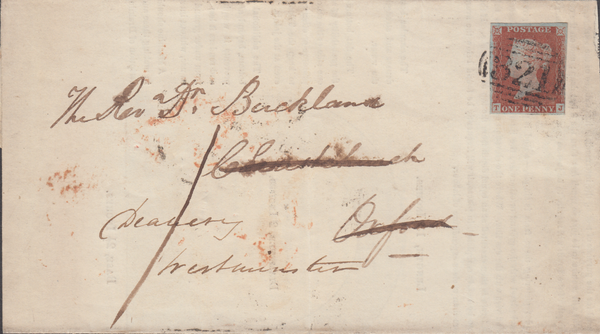 POSTAGE
ONE PENNY
The Revd Dr. Buckland
Christchurch
Deanery Oxford
Westminster